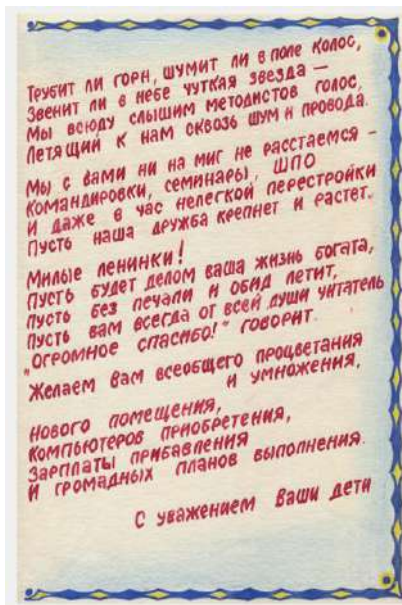 Трубит ли горн, шумит ли в поле колос,
Звенит ли в небе чуткая звезда –
Мы всюду слышим методистов голос,
Летящий к нам сквозь шум и провода.
Мы с вами ни на миг не расстаемся –
Командировки, семинары, ШПО
И даже в час нелегкой перестройки
Пусть наша дружба крепнет и растет.
Милые ленинки!
Пусть будет делом ваша жизнь богата,
Пусть без печали и обид летит,
Пусть вам всегда от всей души читатель
„Огромное спасибо!" говорит.
Желаем Вам всеобщего процветания
и умножения,
Нового помещения,
Компьютеров приобретения,
Зарплаты прибавления
И громадных планов выполнения.
С уважением Ваши дети